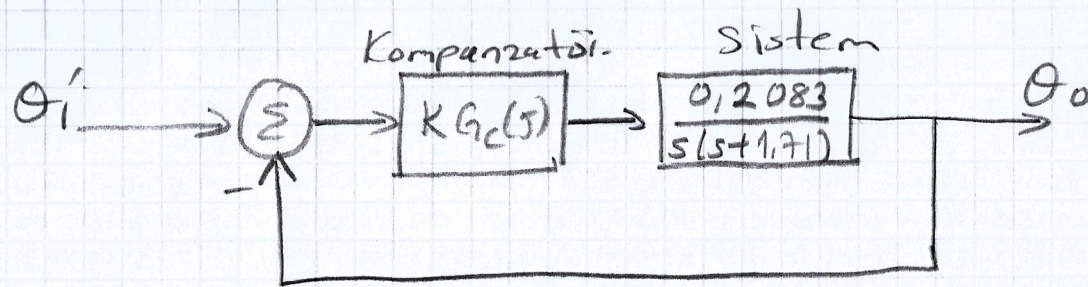 Kompanzatör. Sistem
θi Σ K Gc(s) 0,2083 θo
s(s+1,71)
-